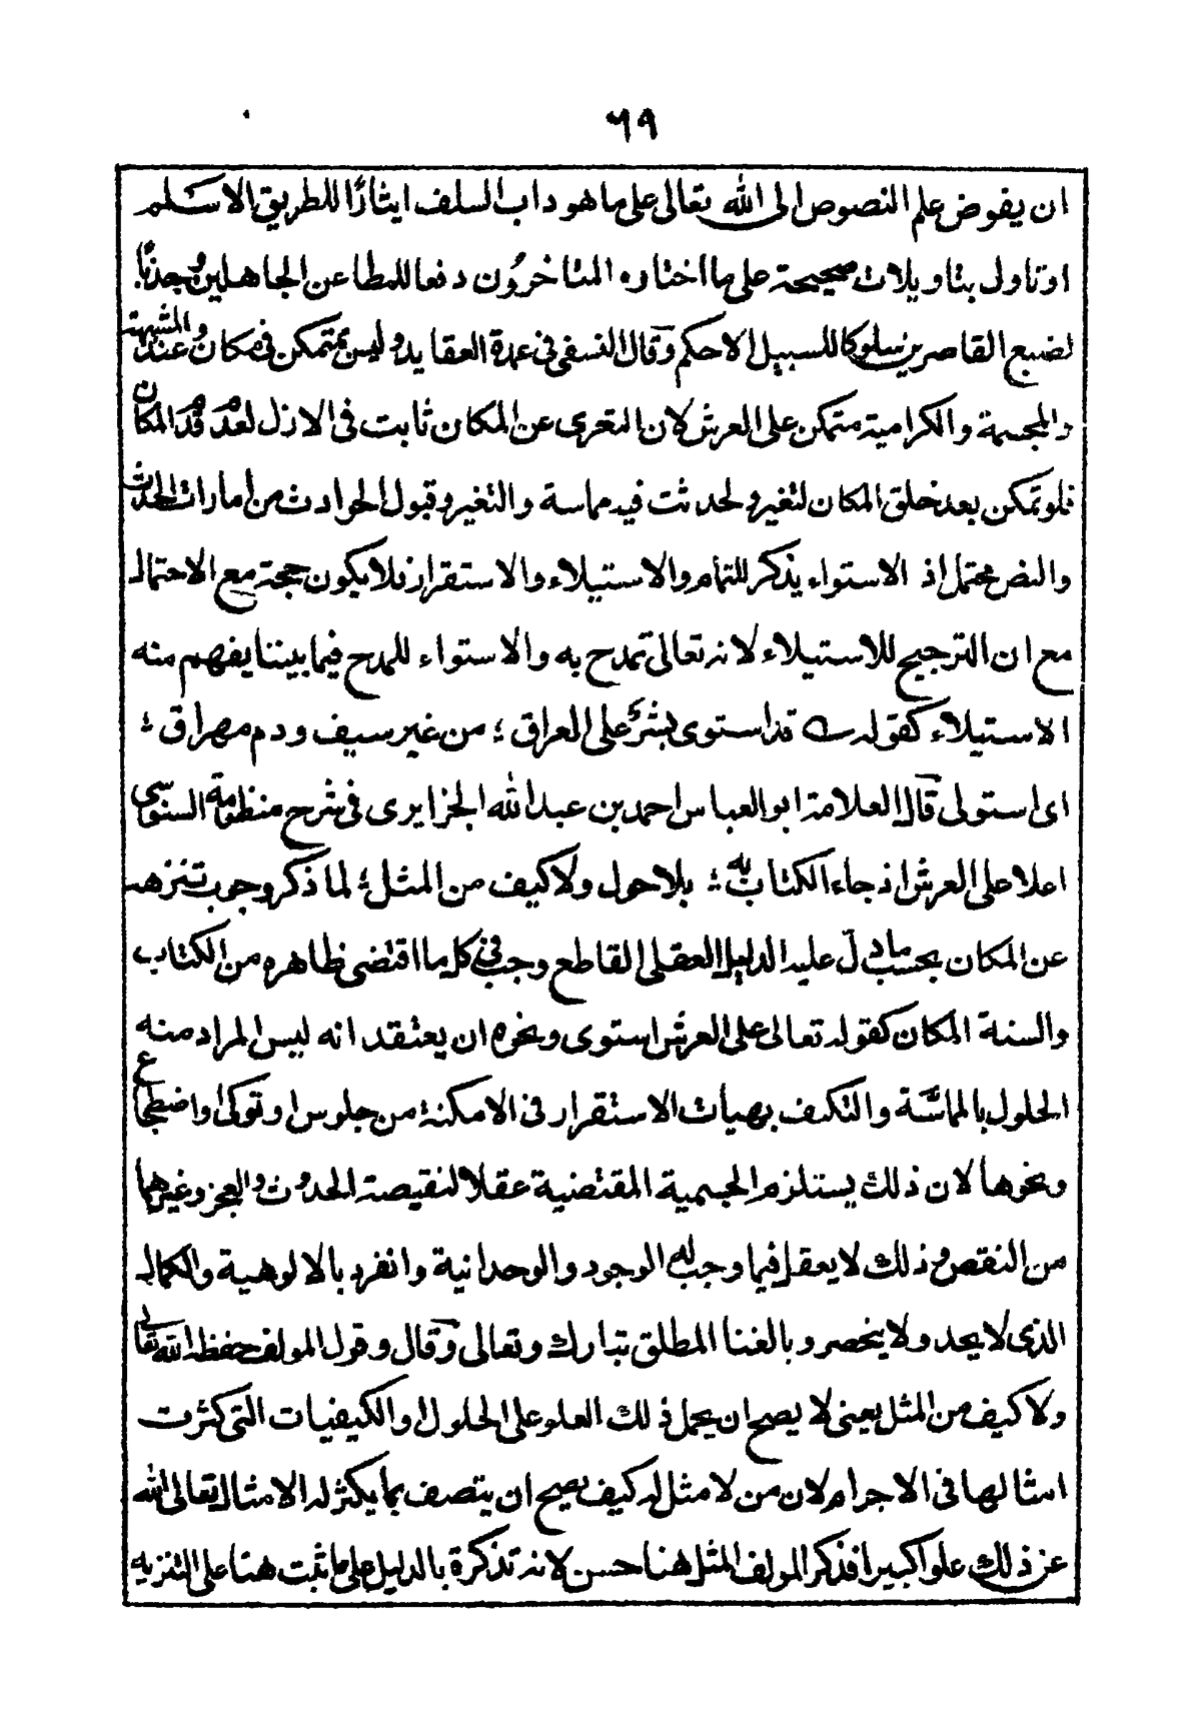 ٦٩
ان يفوض علم النصوص الى الله تعالى على ما هو داب السلف ايثارًا للطريق الاسلم
اوتاول بتاويلات صحيحة على ما اختاره المتاخرون دفعا للمطاعن الجاهلين وجذبًا
لضبع القاصرين سلوكا للسبيل الاحكم وقال النسفى فى عمدة العقايد وليس بمتمكن فى مكان وعند المشبهة
والمجسمة والكرامية متمكن على العرش لان التعرى عن المكان ثابت فى الازل لعدم قدم المكان
فلو تمكن بعد خلق المكان لتغير ولحدثت فيه مماسة والتغير وقبول الحوادث من امارات الحدث
والنص محتمل اذ الاستواء يذكر للتمام والاستيلاء والاستقرار فلا يكون حجة مع الاحتمال
مع ان الترجيح للاستيلاء لانه تعالى تمدح به والاستواء للمدح فيما بيننا يفهم منه
الاستيلاء كقوله قد استوى بشر على العراق ؛ من غير سيف ودم مهراق ؛
اى استولى قال العلامة ابو العباس احمد بن عبد الله الجزايرى فى شرح منظومة السنوسى
اعلا على العرش اذ جاء الكتاب به ؛ بلا حول ولا كيف من المثل ؛ لما ذكر وجوب تنزهه
عن المكان بحسب ما دلّ عليه الدليل العقلى القاطع وجب فى كل ما اقتضى ظاهره من الكتاب
والسنة المكان كقوله تعالى على العرش استوى ونحوه ان يعتقد انه ليس المراد منه
الحلول بالمماسّة والتكيف بهيات الاستقرار فى الامكنة من جلوس او توكئ او اضطجاع
ونحوها لان ذلك يستلزم الجسمية المقتضية عقلا لنقيصة الحدوث والعجز وغيرهما
من النقص وذلك لا يعقل فيما وجب له الوجود والوحدانية وانفرد بالالوهية والكمال
الذى لا يحد ولا ينحصر وبالغنا المطلق تبارك وتعالى وقال وقول المولف حفظه الله تعالى
ولا كيف من المثل يعنى لا يصح ان يحمل ذلك العلو على الحلول والكيفيات التى كثرت
امثالها فى الاجرام لان من لا مثل له كيف يصح ان يتصف بما يكثر له الامثال تعالى الله
عن ذلك علوا كبيرا فذكر المولف المثل هنا حسن لانه تذكرة بالدليل على ما ثبت هنا على التنزيه